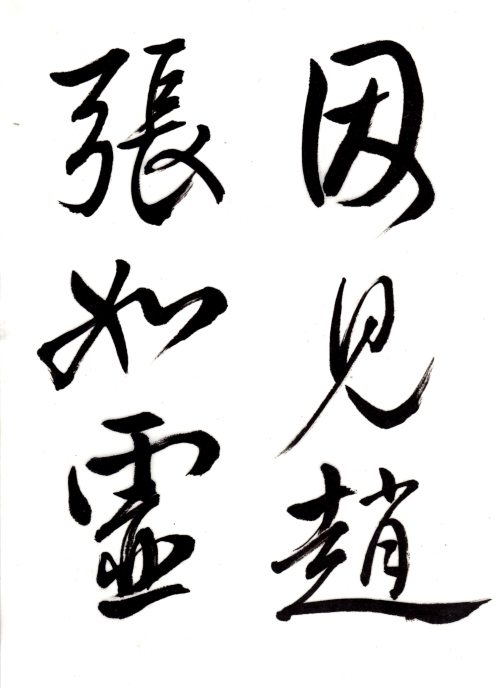 因見趙
張如霊